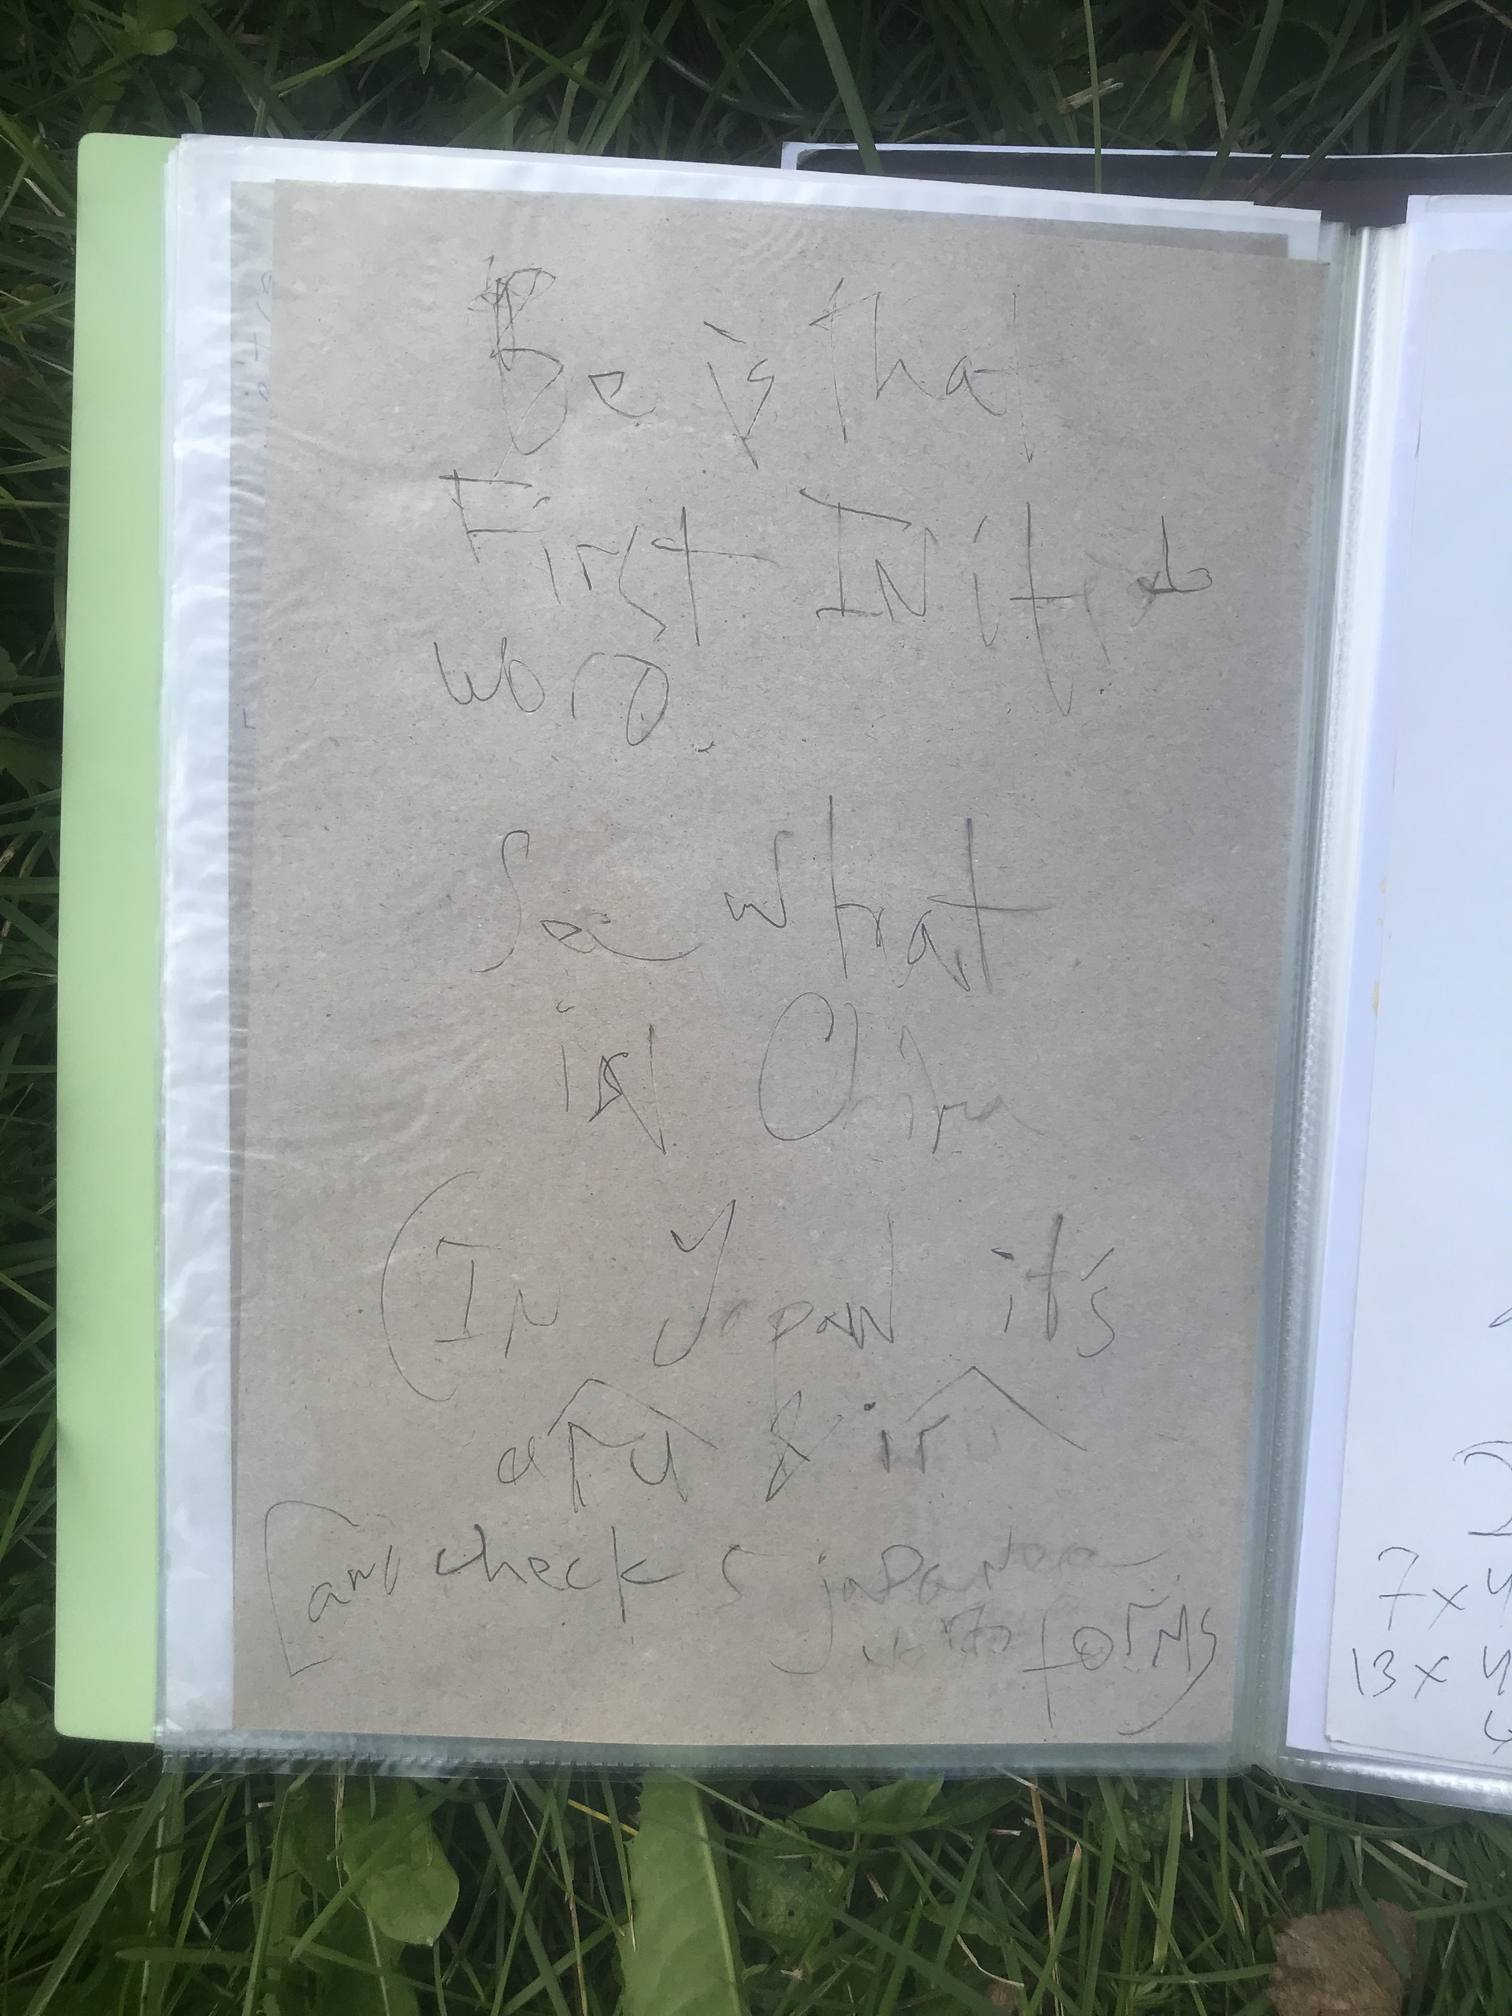 Be is that
First INitial
word.
See what
is IN China
(IN Japan it's
aru & iru
[and check 5 japanese
verb forms
7 x 4
13 x 4